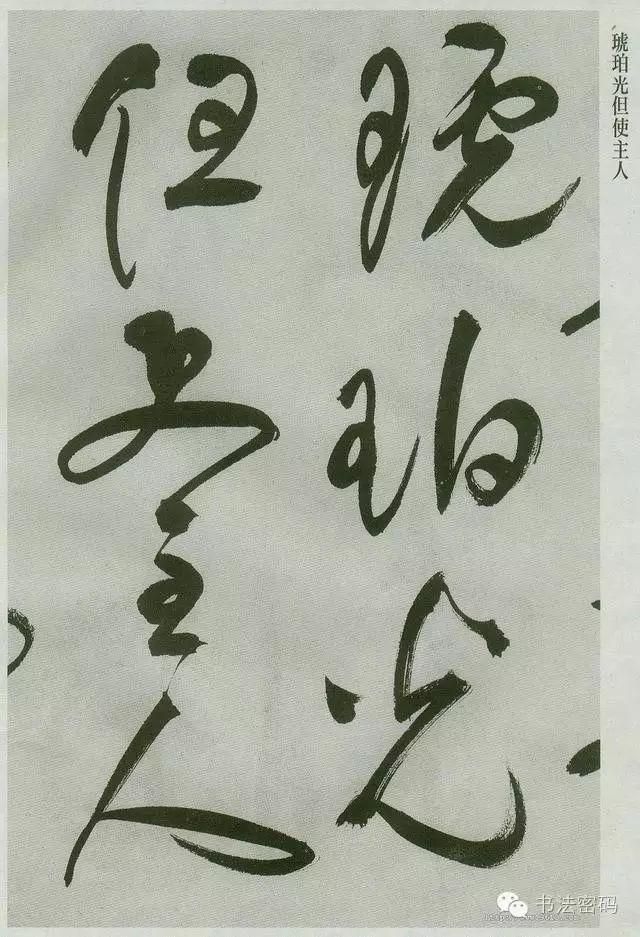 琥珀光
但使主人
琥珀光但使主人
书法密码